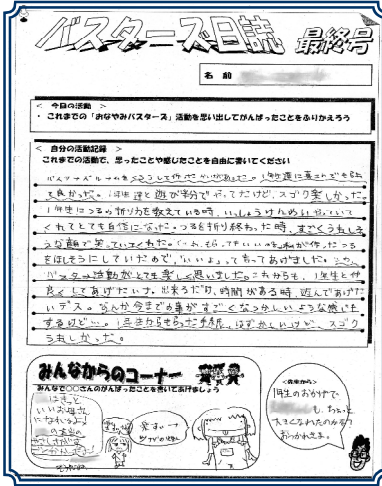 バスターズ日誌 最終号
名前
< 今日の活動 >
・ これまでの「おなやみバスターズ」活動を思い出してがんばったことをふりかえろう
< 自分の活動記録 >
これまでの活動で、思ったことや感じたことを自由に書いてください
1年生達に喜こんでもらえ
て良かった。1年生達と遊び半分でやってたけど、スゴク楽しかった。
1年生につるの折り方を教えている時、いっしょうけんめいやっていて
くれてとても自信になった。つるを折り終わった時、すごくうれしそ
うな顔で笑っていてくれた。「これ、もらっていい?」と私が作ったつる
をほしそうにしていたので、「いいよ」ってもらってあげました。
バスターズ活動がとても楽しく思いました。これからも、1年生と仲
良くしてあげたい。出来るだけ、時間がある時、遊んであげた
いデス。なんか今までの事がすごくなつかしいような感じも
するけど…。1年生からもらった手紙、はずかしいけど、スゴク
うれしかった。
みんなからのコーナー
みんなで○○さんのがんばったことを書いてあげましょう
はきっと
いいお母さん
になれるよ
<先生から>
1年生のおかげで
も、ちょっと
大きくなれたのかな?
おつかれさま。